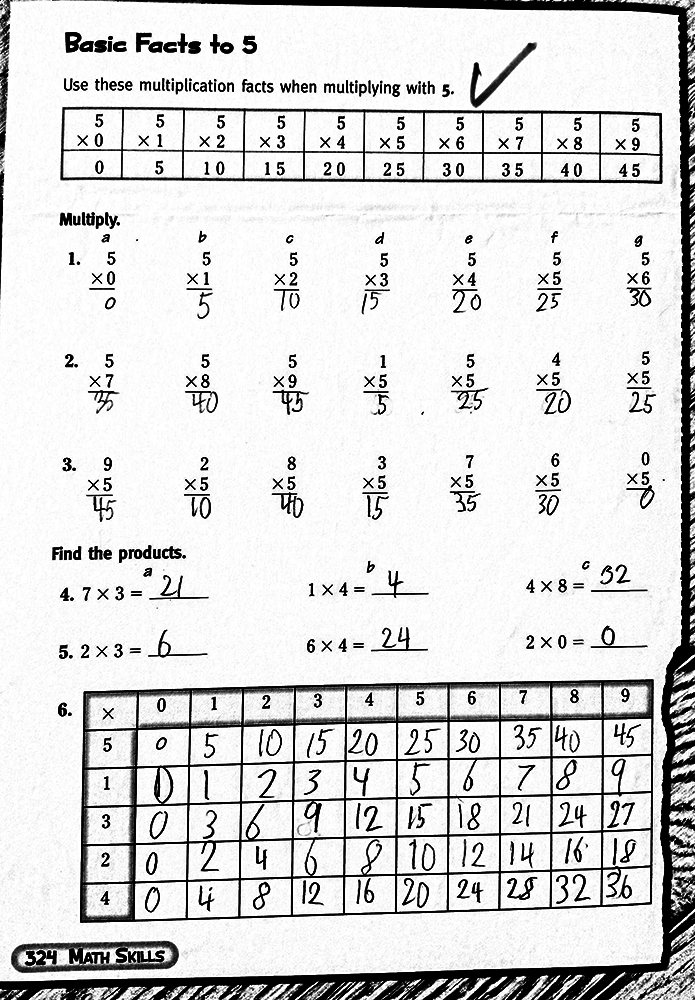 Basic Facts to 5
Use these multiplication facts when multiplying with 5.
5 5 5 5 5 5 5 5 5 5
×0 ×1 ×2 ×3 ×4 ×5 ×6 ×7 ×8 ×9
0 5 10 15 20 25 30 35 40 45
Multiply.
a b c d e f g
1. 5 5 5 5 5 5 5
×0 ×1 ×2 ×3 ×4 ×5 ×6
0 5 10 15 20 25 30
2. 5 5 5 1 5 4 5
×7 ×8 ×9 ×5 ×5 ×5 ×5
35 40 45 5 25 20 25
3. 9 2 8 3 7 6 0
×5 ×5 ×5 ×5 ×5 ×5 ×5
45 10 40 15 35 30 0
Find the products.
a b c
4. 7 × 3 = 21 1 × 4 = 4 4 × 8 = 32
5. 2 × 3 = 6 6 × 4 = 24 2 × 0 = 0
6. × 0 1 2 3 4 5 6 7 8 9
5 0 5 10 15 20 25 30 35 40 45
1 0 1 2 3 4 5 6 7 8 9
3 0 3 6 9 12 15 18 21 24 27
2 0 2 4 6 8 10 12 14 16 18
4 0 4 8 12 16 20 24 28 32 36
324 Math Skills